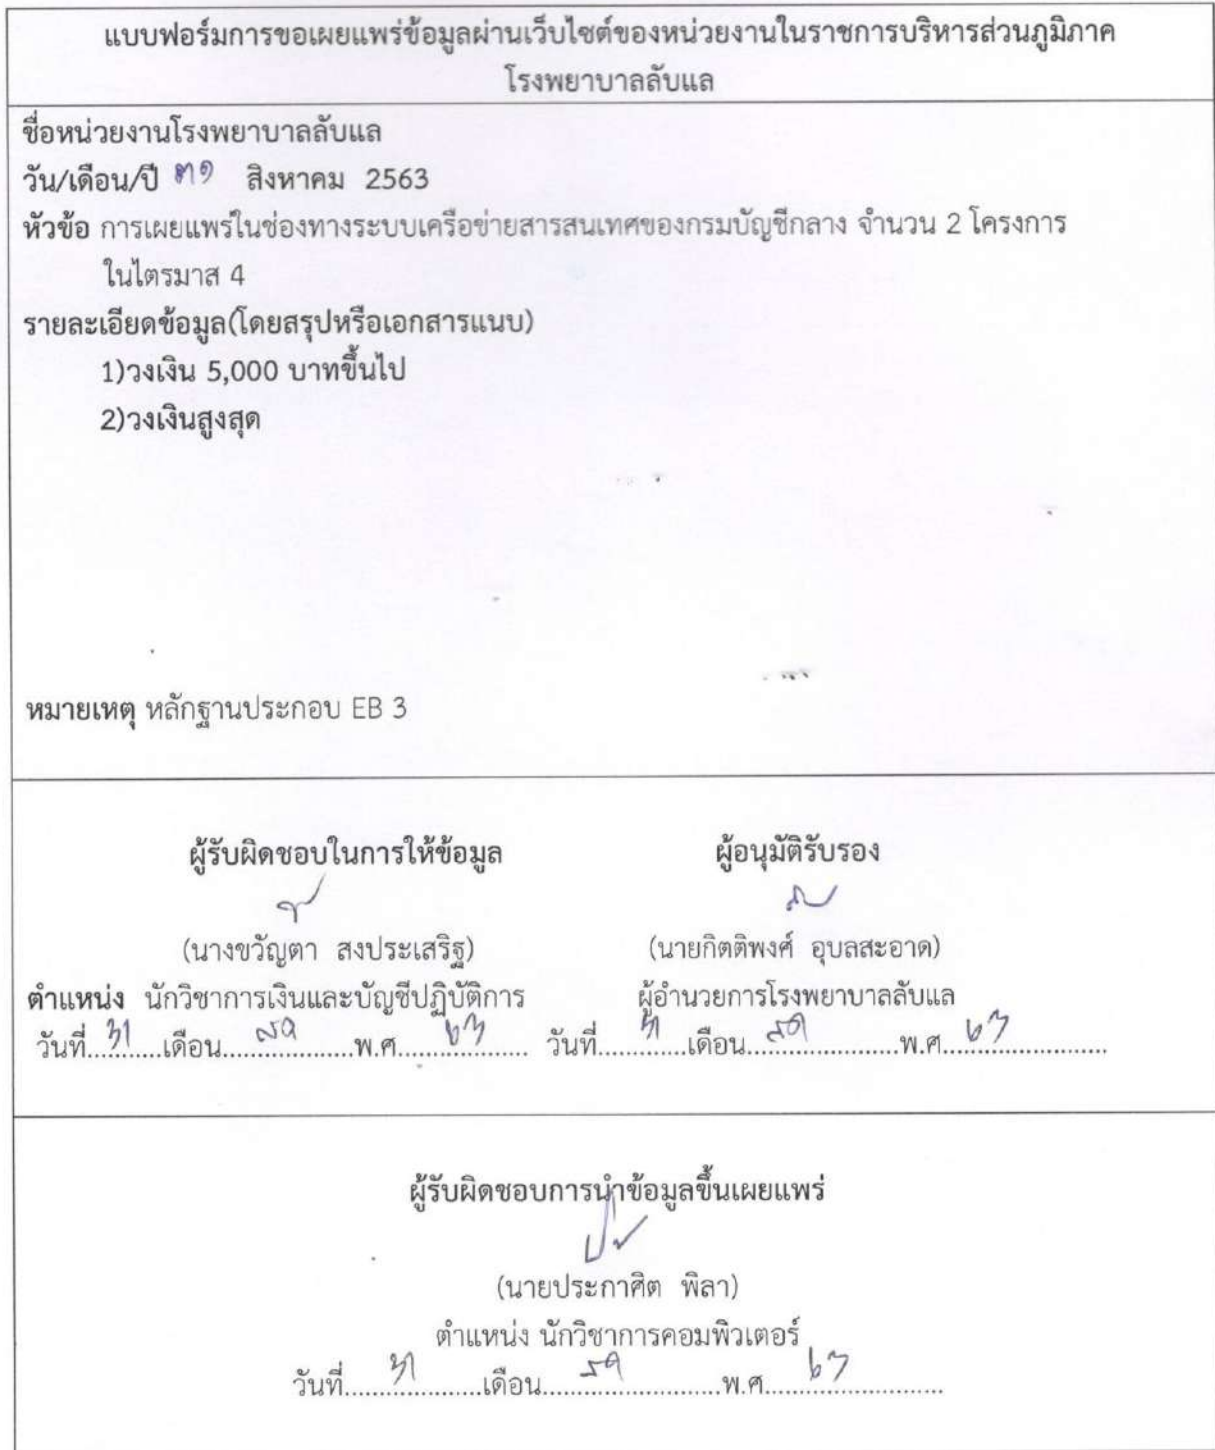 แบบฟอร์มการขอเผยแพร่ข้อมูลผ่านเว็บไซต์ของหน่วยงานในราชการบริหารส่วนภูมิภาค
โรงพยาบาลลับแล
ชื่อหน่วยงานโรงพยาบาลลับแล
วัน/เดือน/ปี ๓๑ สิงหาคม 2563
หัวข้อ การเผยแพร่ในช่องทางระบบเครือข่ายสารสนเทศของกรมบัญชีกลาง จำนวน 2 โครงการ
ในไตรมาส 4
รายละเอียดข้อมูล(โดยสรุปหรือเอกสารแนบ)
1)วงเงิน 5,000 บาทขึ้นไป
2)วงเงินสูงสุด
หมายเหตุ หลักฐานประกอบ EB 3
ผู้รับผิดชอบในการให้ข้อมูล ผู้อนุมัติรับรอง
(นางขวัญตา สงประเสริฐ) (นายกิตติพงศ์ อุบลสะอาด)
ตำแหน่ง นักวิชาการเงินและบัญชีปฏิบัติการ ผู้อำนวยการโรงพยาบาลลับแล
วันที่..๓๑.....เดือน....สค.......พ.ศ.....๖๓..... วันที่....๓๑.....เดือน...สค..........พ.ศ...๖๓............
ผู้รับผิดชอบการนำข้อมูลขึ้นเผยแพร่
(นายประกาศิต พิลา)
ตำแหน่ง นักวิชาการคอมพิวเตอร์
วันที่.....๓๑.......เดือน.....สค..........พ.ศ.....๖๓............